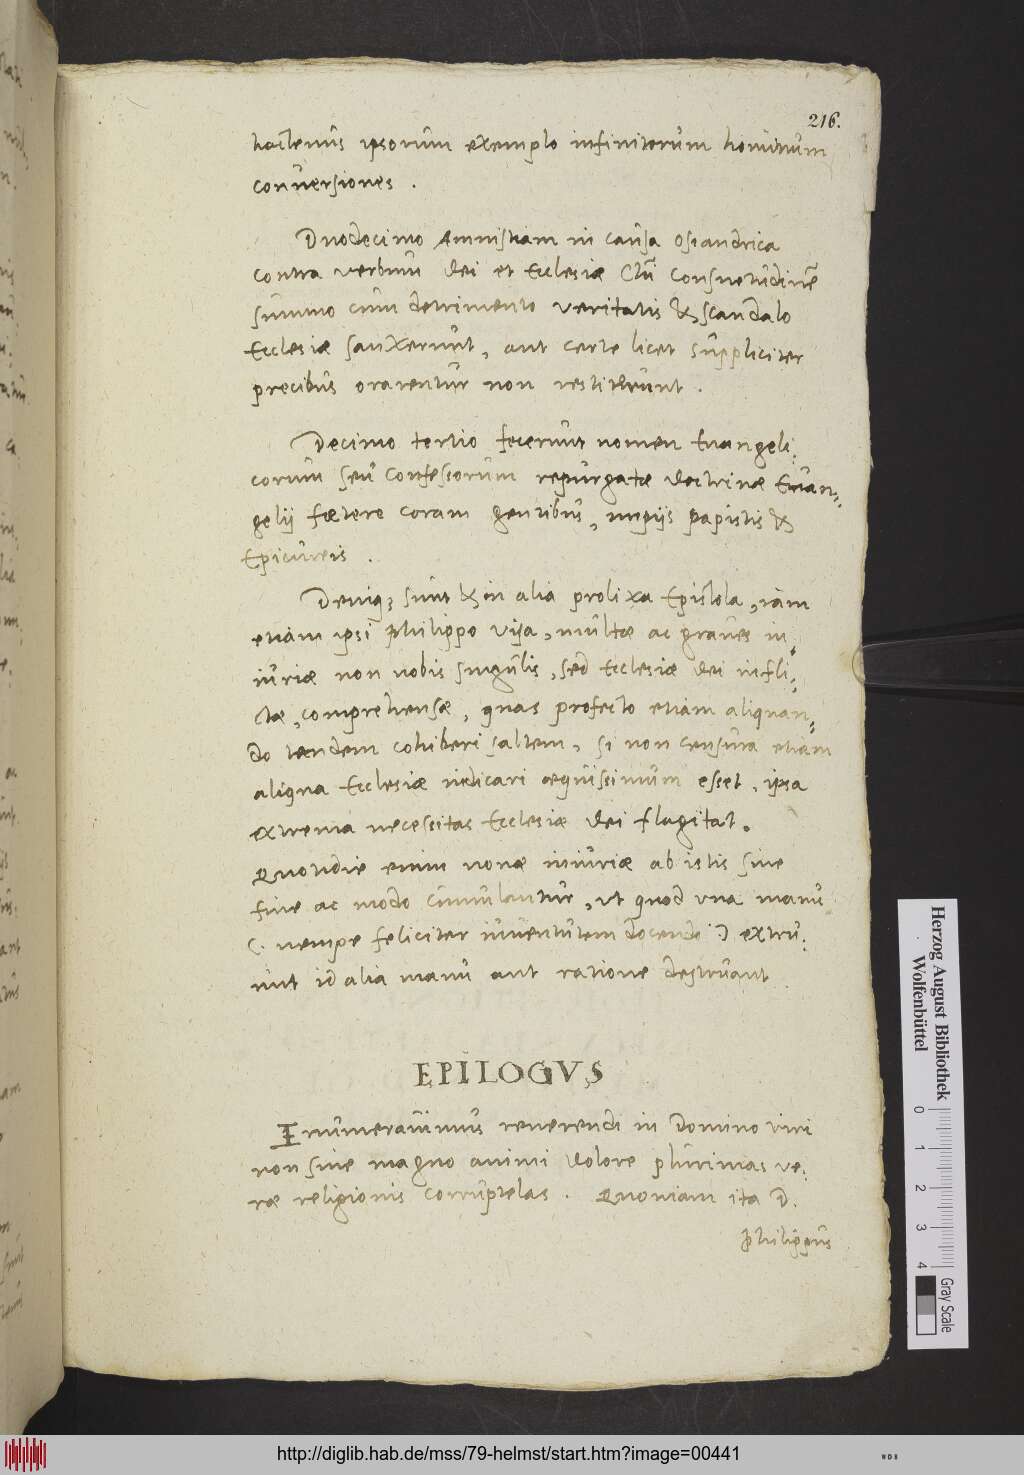 216.
hactenus ipsorum exemplo infinitorum hominum
conversiones .
Duodecimo Amnistiam in causa Osiandrica
contra verbum dei et Ecclesiæ Chri consuetudinē
summo cum detrimento veritatis & scandalo
Ecclesiæ sanxerunt, aut certe licet suppliciter
precibus orarentur non restiterunt .
Decimo tertio fecerunt nomen Euangeli:
corum seu Confessorum repurgatæ doctrinæ Euan:
gelij fœtere coram gentibus, impijs papistis &
Epicureis .
Deniq; sunt & in alia prolixa Epistola, iam
etiam ipsi Philippo visa, multæ ac graves in:
iuriæ non nobis singulis, sed Ecclesiæ dei infli:
ctæ, comprehensæ, quas profecto etiam aliquan:
do tandem cohiberi saltem, si non censura etiam
aliqua Ecclesiæ iudicari æquissimum esset, ipsa
extrema necessitas Ecclesiæ dei flagitat.
Quotidie enim novæ iniuriæ ab istis sine
fine ac modo cumulantur, ut quod una manu
(. nempe feliciter iuventutem docendi .) extru:
unt id alia manu aut ratione destruant
EPILOGVS
Enumeravimus reverendi in Domino viri
non sine magno animi dolore plurimas ve:
ræ religionis corruptelas . Quoniam ita D.
Philippus
Herzog August Bibliothek
Wolfenbüttel
0 1 2 3 4
Gray Scale
http://diglib.hab.de/mss/79-helmst/start.htm?image=00441
WDB